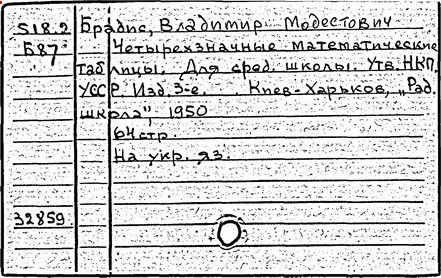 518.2 Брадис, Владимир Модестович
Б87 Четырехзначные математические
таблицы. Для сред. школы. Утв. НКП
УССР. Изд. 3-е. Киев-Харьков, „Рад.
школа”, 1950
64 стр.
На укр. яз.
32859